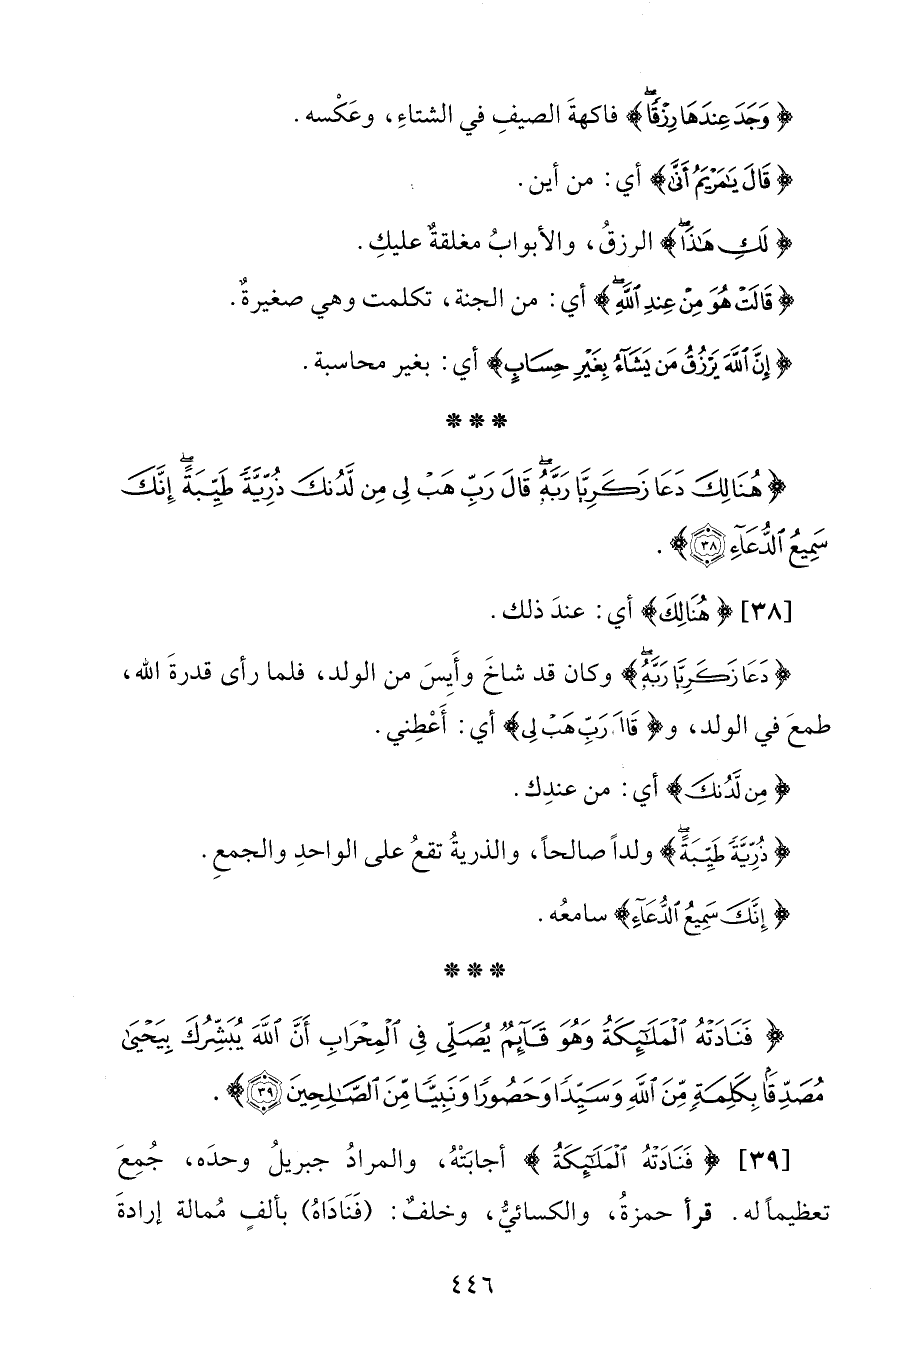 ﴿ وَجَدَ عِندَهَا رِزْقًاۖ ﴾ فاكهةَ الصيفِ في الشتاءِ، وعَكْسه.
﴿ قَالَ يَٰمَرْيَمُ أَنَّىٰ ﴾ أي: من أين.
﴿ لَكِ هَٰذَاۖ ﴾ الرزقُ، والأبوابُ مغلقةٌ عليكِ.
﴿ قَالَتْ هُوَ مِنْ عِندِ ٱللَّهِۖ ﴾ أي: من الجنة، تكلمت وهي صغيرةٌ.
﴿ إِنَّ ٱللَّهَ يَرْزُقُ مَن يَشَآءُ بِغَيْرِ حِسَابٍ ﴾ أي: بغير محاسبة.
* * *
﴿ هُنَالِكَ دَعَا زَكَرِيَّا رَبَّهُۥۖ قَالَ رَبِّ هَبْ لِى مِن لَّدُنكَ ذُرِّيَّةً طَيِّبَةًۖ إِنَّكَ
سَمِيعُ ٱلدُّعَآءِ ٣٨ ﴾.
[٣٨] ﴿ هُنَالِكَ ﴾ أي: عندَ ذلك.
﴿ دَعَا زَكَرِيَّا رَبَّهُۥۖ ﴾ وكان قد شاخَ وأَيِسَ من الولد، فلما رأى قدرةَ الله،
طمعَ في الولد، و﴿ قَالَ رَبِّ هَبْ لِى ﴾ أي: أَعْطِني.
﴿ مِن لَّدُنكَ ﴾ أي: من عندِك.
﴿ ذُرِّيَّةً طَيِّبَةًۖ ﴾ ولداً صالحاً، والذريةُ تقعُ على الواحدِ والجمعِ.
﴿ إِنَّكَ سَمِيعُ ٱلدُّعَآءِ ﴾ سامعُه.
* * *
﴿ فَنَادَتْهُ ٱلْمَلَٰٓئِكَةُ وَهُوَ قَآئِمٌ يُصَلِّى فِى ٱلْمِحْرَابِ أَنَّ ٱللَّهَ يُبَشِّرُكَ بِيَحْيَىٰ
مُصَدِّقًۢا بِكَلِمَةٍ مِّنَ ٱللَّهِ وَسَيِّدًا وَحَصُورًا وَنَبِيًّا مِّنَ ٱلصَّٰلِحِينَ ٣٩ ﴾.
[٣٩] ﴿ فَنَادَتْهُ ٱلْمَلَٰٓئِكَةُ ﴾ أجابَتْهُ، والمرادُ جبريلُ وحدَه، جُمِعَ
تعظيماً له. قرأ حمزةُ، والكسائيُّ، وخلفٌ: (فَنَادَاهُ) بألفٍ مُمالة إرادةَ
٤٤٦